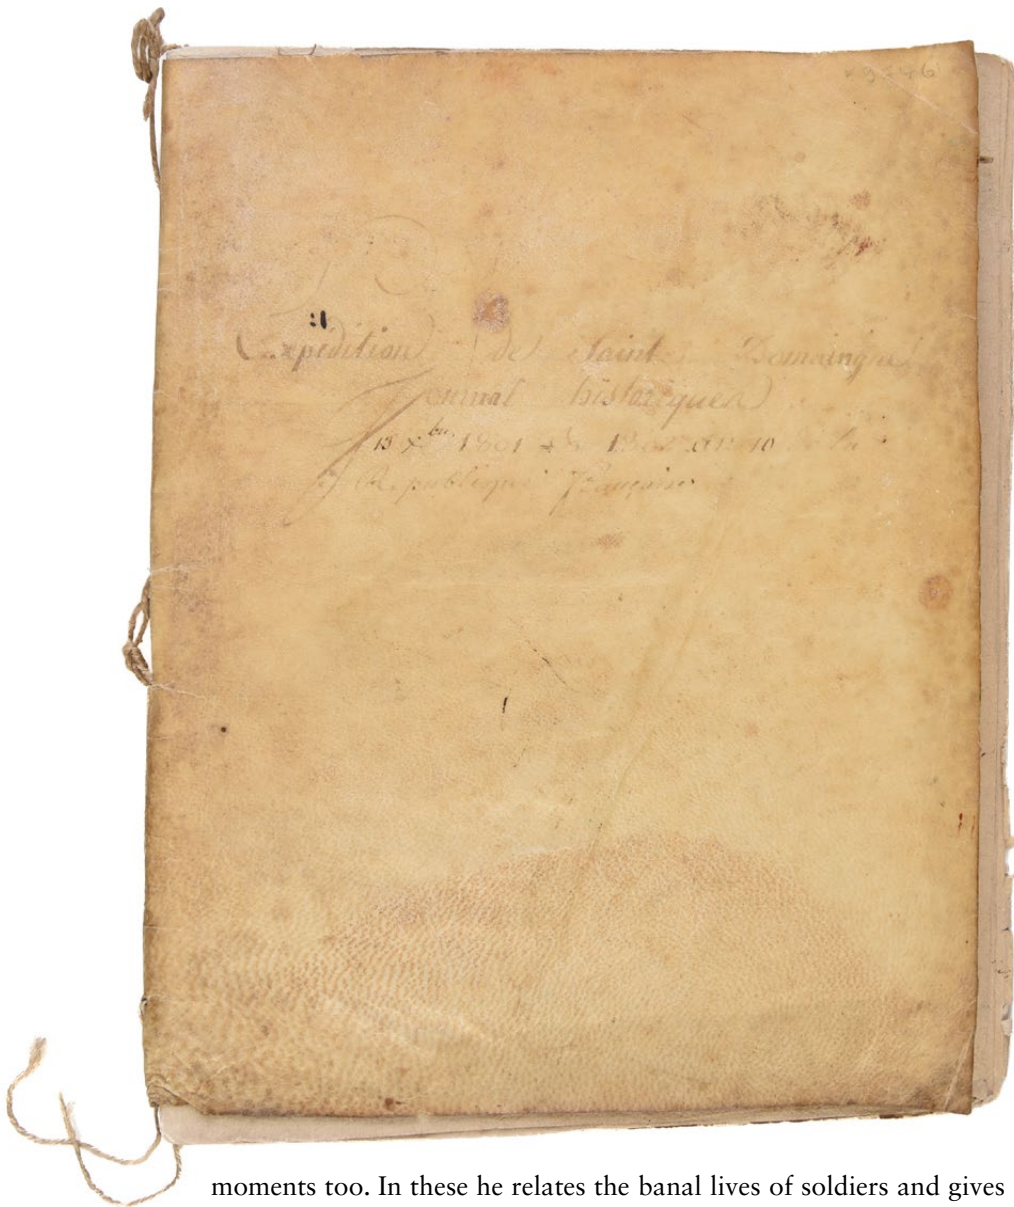 Expédition de Saint Domaingue
Journal historique
15 Xbre 1801 1802 an 10 de la
République Française
moments too. In these he relates the banal lives of soldiers and gives